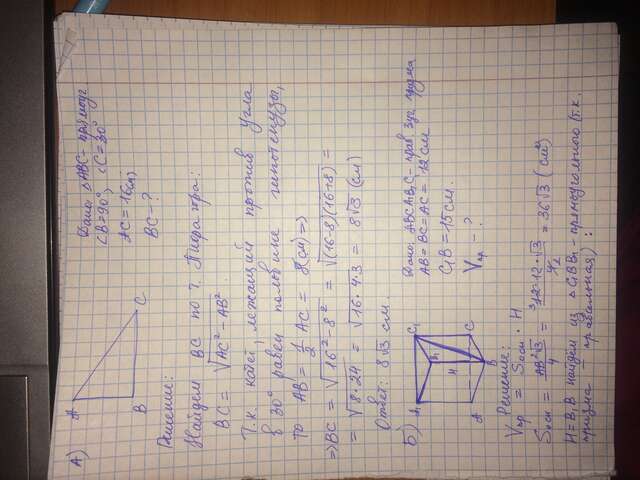 А)
A
B
C
Дано: △ABC – прямоуг
∠B=90°, ∠C=30°
AC = 16(см)
BC – ?
Решение:
Найдем BC по т. Пифагора:
BC = √AC² − AB²
Т.к. катет, лежащий против угла
в 30° равен половине гипотенузы,
то AB = 1/2 AC = 8(см) ⇒
⇒ BC = √16² − 8² = √(16-8)(16+8) =
= √8·24 = √16·4·3 = 8√3 (см)
Ответ: 8√3 см.
Б)
A₁
C₁
B₁
H
A
C
B
Дано: ABCA₁B₁C – прав. 3уг. призма
AB = BC = AC = 12 см
C₁B = 15 см.
Vпр – ?
Решение:
Vпр = Sосн · H
Sосн = AB²√3/4 = 12·12·√3/4 = 36√3 (см²)
H = B₁B найдем из △C₁BB₁ – прямоугольного (т.к.
призма – правильная) :